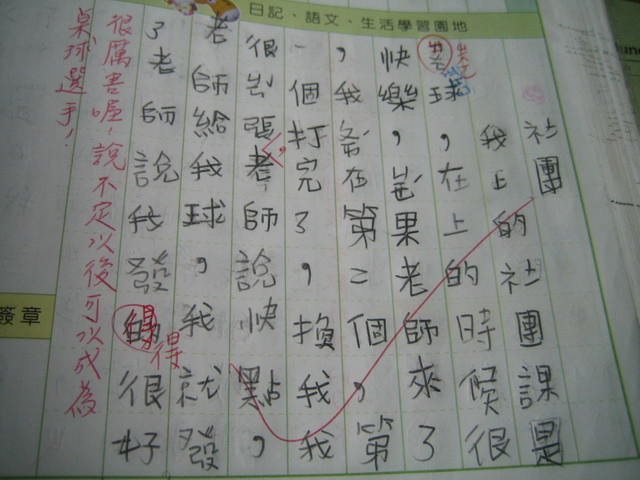 日記、語文、生活學習園地
社團
我上的社團課是
桌球，在上的時候很
快樂，
果老師來了
，我
在第二個，第
一個打完了，損我，我
很
張老師說快點，
老師給我球，我就發
了老師說我發
很好
得
很厲害喔，說不定以後可以成為
桌球選手！
簽章